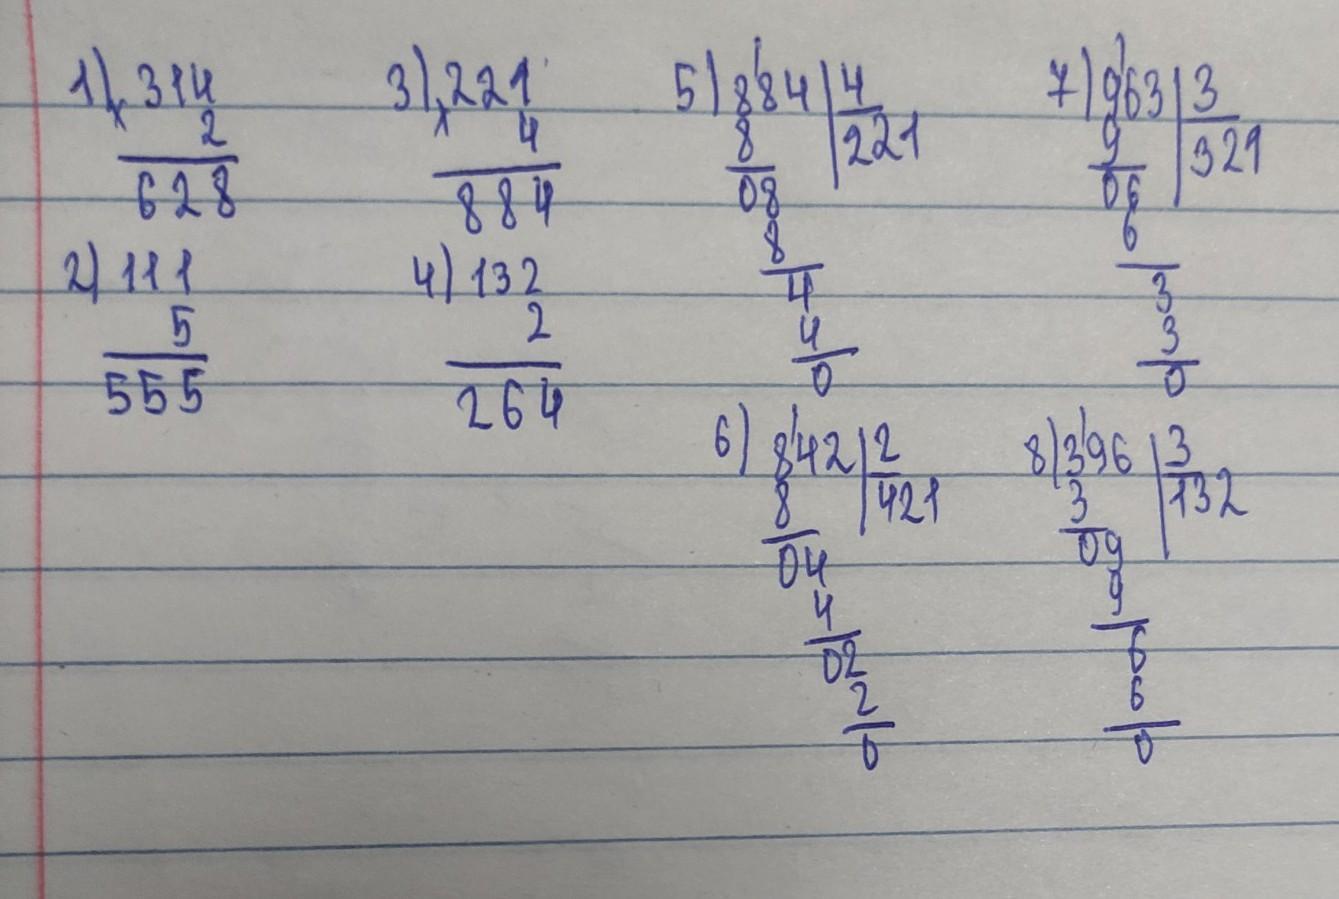 1) 314
x 2
628
2) 111
5
555
3) 221
x 4
884
4) 132
2
264
5) 8'84 | 4
8 | 221
08
8
4
4
0
6) 8'42 | 2
8 | 421
04
4
02
2
0
7) 9'63 | 3
9 | 321
06
6
3
3
0
8) 3'96 | 3
3 | 132
09
9
6
6
0